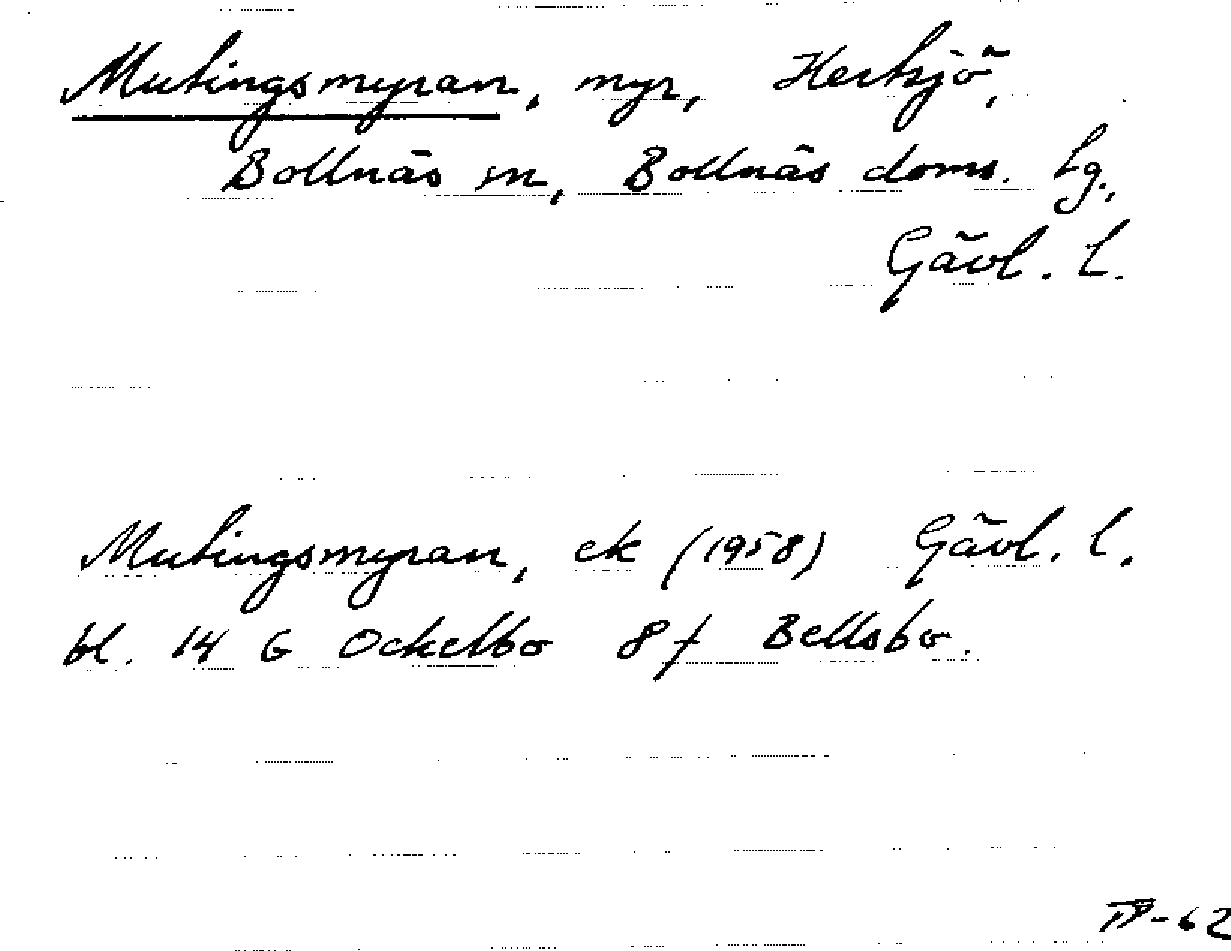 Mutingsmyran, myr, Hertsjö,
Bollnäs sn, Bollnäs doms. hg.,
Gävl. l.
Mutingsmyran, ek (1958) Gävl. l.
bl. 14 G Ockelbo 8 f Bellsbo.
-62